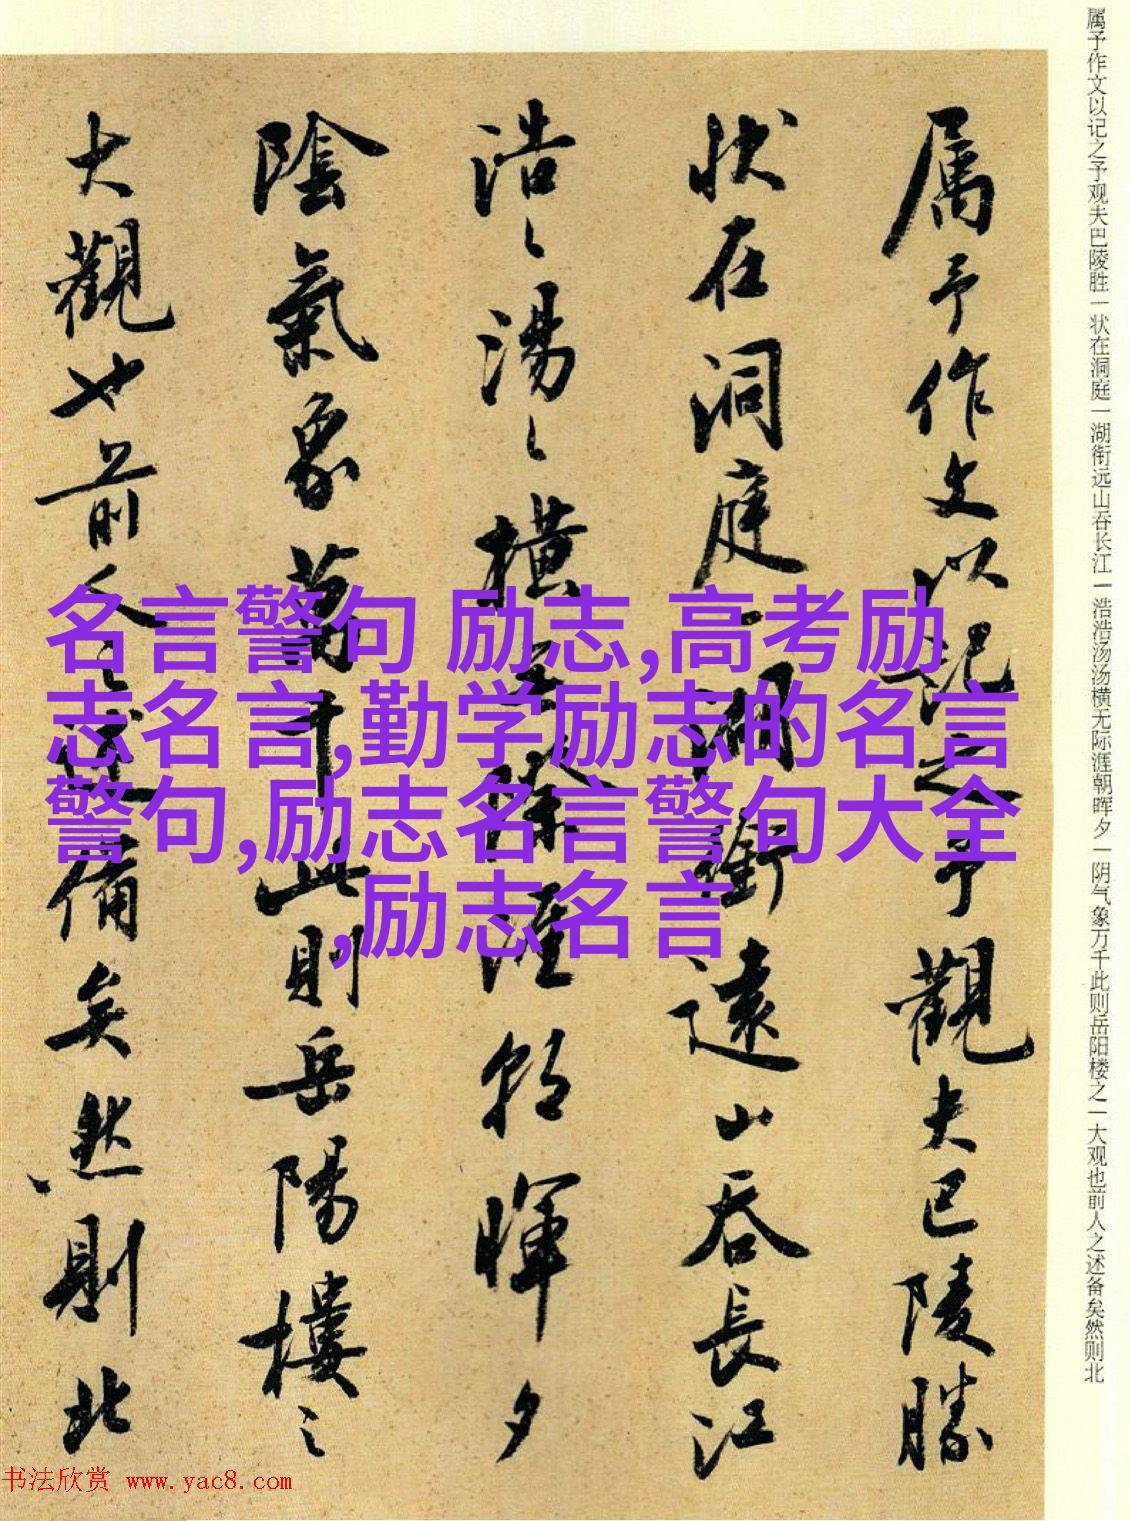 属予作文以记之予观夫巴陵胜一状在洞庭一湖衔远山吞长江一浩浩汤汤横无际涯朝晖夕一阴气象万千此则岳阳楼之一大观也前人之述备矣然则北
属予作文以記之予觀夫巴陵勝
状在洞庭一湖銜遠山吞長江
浩〻湯〻橫無際涯朝暉夕
陰氣象萬千此則岳陽樓之
大觀也前人之述備矣然則北
名言警句 励志,高考励
志名言,勤学励志的名言
警句,励志名言警句大全
,励志名言
书法欣赏 www.yac8.com